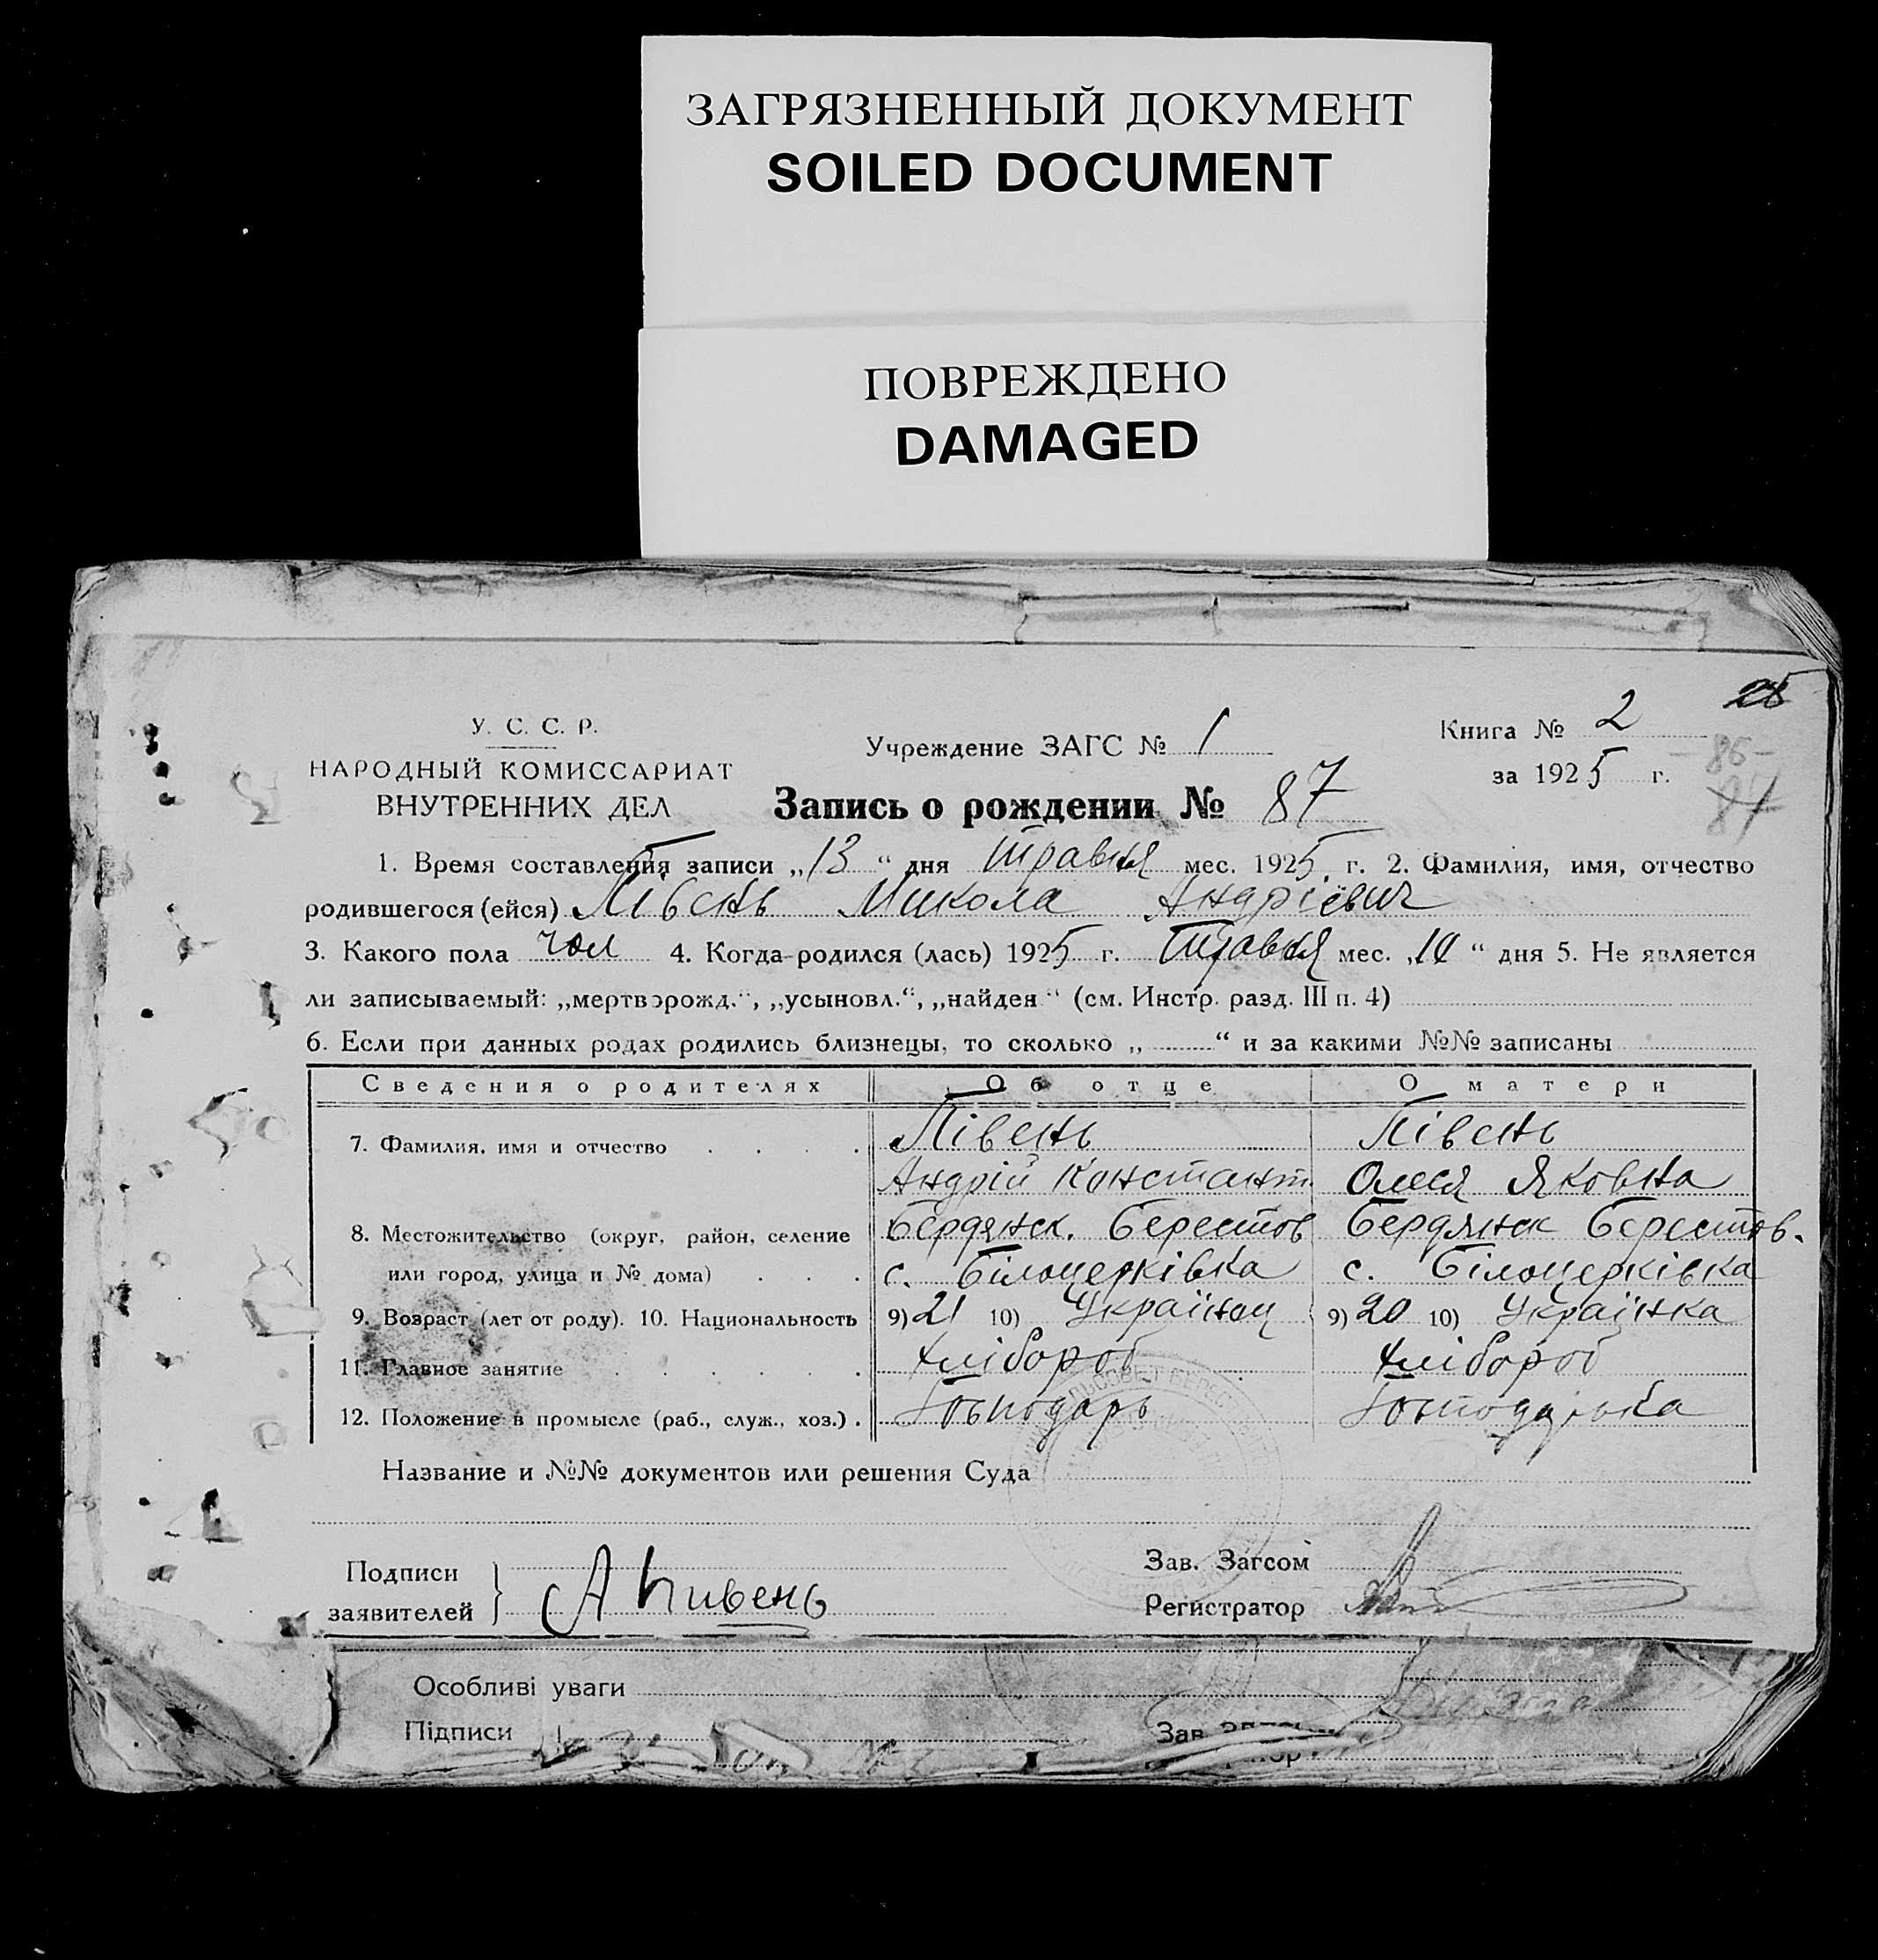 ЗАГРЯЗНЕННЫЙ ДОКУМЕНТ
SOILED DOCUMENT
ПОВРЕЖДЕНО
DAMAGED
У. С. С. Р.
НАРОДНЫЙ КОМИССАРИАТ
ВНУТРЕННИХ ДЕЛ
Учреждение ЗАГС № 1
Книга № 2
за 1925 г.
86
87
Запись о рождении № 87
1. Время составления записи „13“ дня Травня мес. 1925 г. 2. Фамилия, имя, отчество
родившегося (ейся) Півень Микола Андрієвич
3. Какого пола чол 4. Когда родился (лась) 1925 г. Травня мес. „10“ дня 5. Не является
ли записываемый: „мертворожд.“, „усыновл.“, „найден“ (см. Инстр. разд. III п. 4)
6. Если при данных родах родились близнецы, то сколько „ “ и за какими №№ записаны
Сведения о родителях Об отце О матери
7. Фамилия, имя и отчество . . . . Півень Півень
Андрій Констант. Олеся Яковна
8. Местожительство (округ, район, селение Бердянск. Берестов Бердянск Берестов.
или город, улица и № дома) . . . с. Білоцерківка с. Білоцерківка
9. Возраст (лет от роду). 10. Национальность 9) 21 10) Українец 9) 20 10) Українка
11. Главное занятие . . . . . . Хлібороб Хлібороб
12. Положение в промысле (раб., служ., хоз.) . Господарь Господарька
Название и №№ документов или решения Суда
Подписи
заявителей } А Пивень
Зав. Загсом
Регистратор
Особливі уваги
Підписи
Зав.